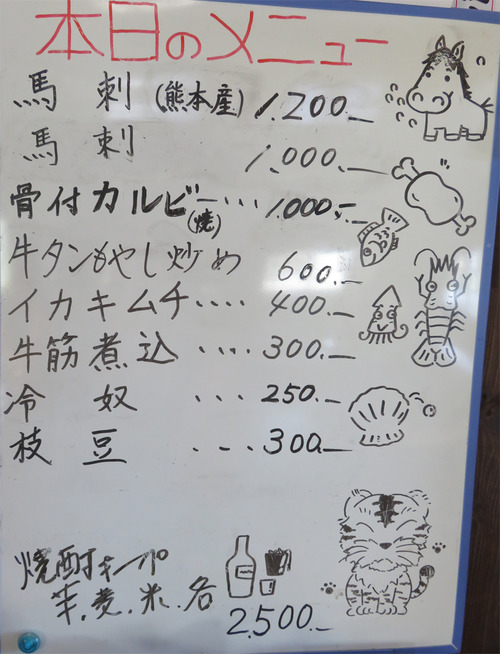 本日のメニュー
馬刺(熊本産) 1,200.ー
馬刺 1,000.ー
骨付カルビー(焼)‥‥ 1,000.ー
牛タンもやし炒め 600.ー
イカキムチ‥‥ 400.ー
牛筋煮込‥‥ 300.ー
冷奴 ‥‥ 250.ー
枝豆 ‥‥ 300.ー
焼酎キープ
芋.麦.米.各
2,500.ー